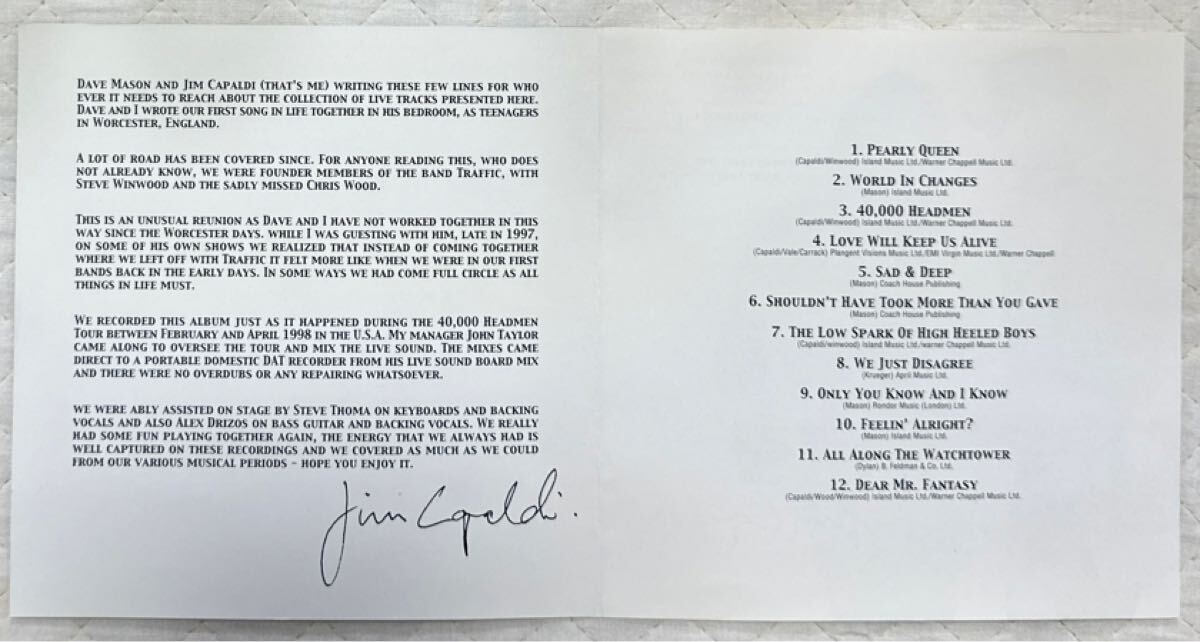 Dave Mason and Jim Capaldi (that's me) writing these few lines for who
ever it needs to reach about the collection of live tracks presented here.
Dave and I wrote our first song in life together in his bedroom, as teenagers
in Worcester, England.
A lot of road has been covered since. For anyone reading this, who does
not already know, we were founder members of the band Traffic, with
Steve Winwood and the sadly missed Chris Wood.
This is an unusual reunion as Dave and I have not worked together in this
way since the Worcester days. While I was guesting with him, late in 1997,
on some of his own shows we realized that instead of coming together
where we left off with Traffic it felt more like when we were in our first
bands back in the early days. In some ways we had come full circle as all
things in life must.
We recorded this album just as it happened during the 40,000 Headmen
Tour between February and April 1998 in the U.S.A. My manager John Taylor
came along to oversee the tour and mix the live sound. The mixes came
direct to a portable domestic DAT recorder from his live sound board mix
and there were no overdubs or any repairing whatsoever.
We were ably assisted on stage by Steve Thoma on keyboards and backing
vocals and also Alex Drizos on bass guitar and backing vocals. We really
had some fun playing together again, the energy that we always had is
well captured on these recordings and we covered as much as we could
from our various musical periods - hope you enjoy it.
Jim Capaldi.
1. Pearly Queen
(Capaldi/Winwood) Island Music Ltd./Warner Chappell Music Ltd.
2. World In Changes
(Mason) Island Music Ltd.
3. 40,000 Headmen
(Capaldi/Winwood) Island Music Ltd./Warner Chappell Music Ltd.
4. Love Will Keep Us Alive
(Capaldi/Vale/Carrack) Plangent Visions Music Ltd./EMI Virgin Music Ltd./Warner Chappell
5. Sad & Deep
(Mason) Coach House Publishing
6. Shouldn't Have Took More Than You Gave
(Mason) Coach House Publishing
7. The Low Spark Of High Heeled Boys
(Capaldi/winwood) Island Music Ltd./warner Chappell Music Ltd.
8. We Just Disagree
(Krueger) April Music Ltd.
9. Only You Know And I Know
(Mason) Rondor Music (London) Ltd.
10. Feelin' Alright?
(Mason) Island Music Ltd.
11. All Along The Watchtower
(Dylan) B. Feldman & Co. Ltd.
12. Dear Mr. Fantasy
(Capaldi/Wood/Winwood) Island Music Ltd./Warner Chappell Music Ltd.